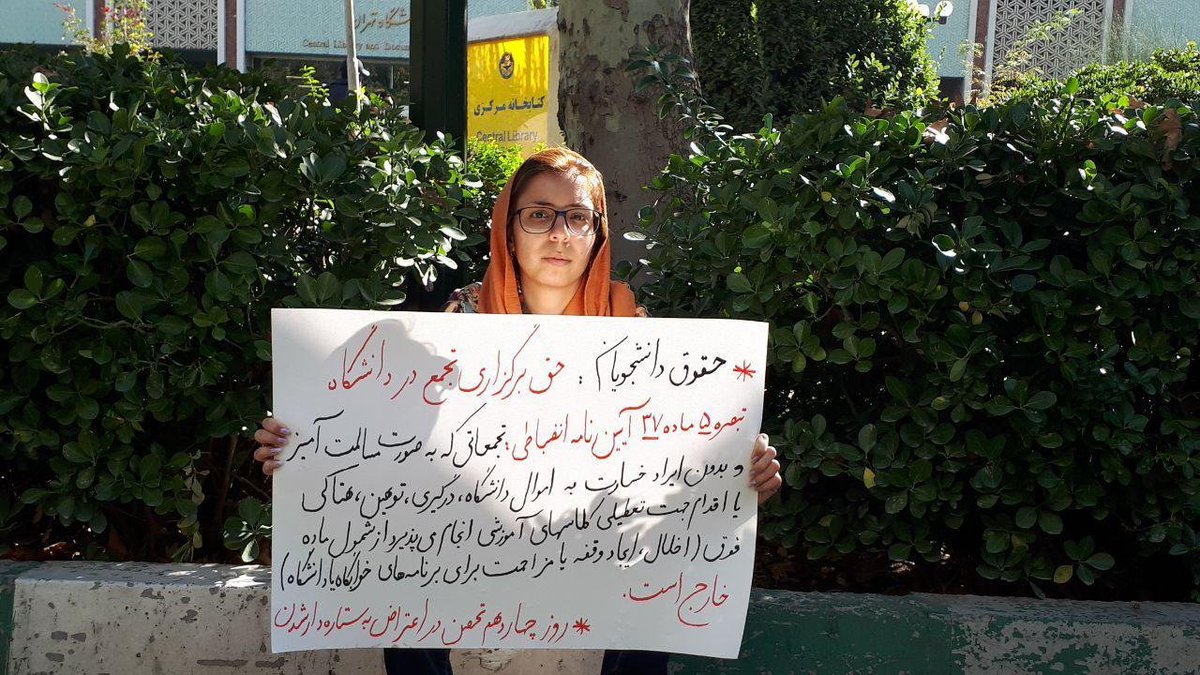 دانشگاه تهران
Central Library and Docum
کتابخانه مرکزی
Central Library
* حقوق دانشجویان: حق برگزاری تجمع در دانشگاه
تبصره ۵ ماده ۳۷ آیین نامه انضباطی: تجمعاتی که به صورت مسالمت آمیز
و بدون ایراد خسارت به اموال دانشگاه، درگیری، توهین، هتاکی
یا اقدام جهت تعطیلی کلاسهای آموزشی انجام می پذیرد از شمول ماده
فوق (اخلال، ایجاد وقفه یا مزاحمت برای برنامه‌های خوابگاه یا دانشگاه)
خارج است.
* روز چهاردهم تحصن در اعتراض به ستاره دار شدن